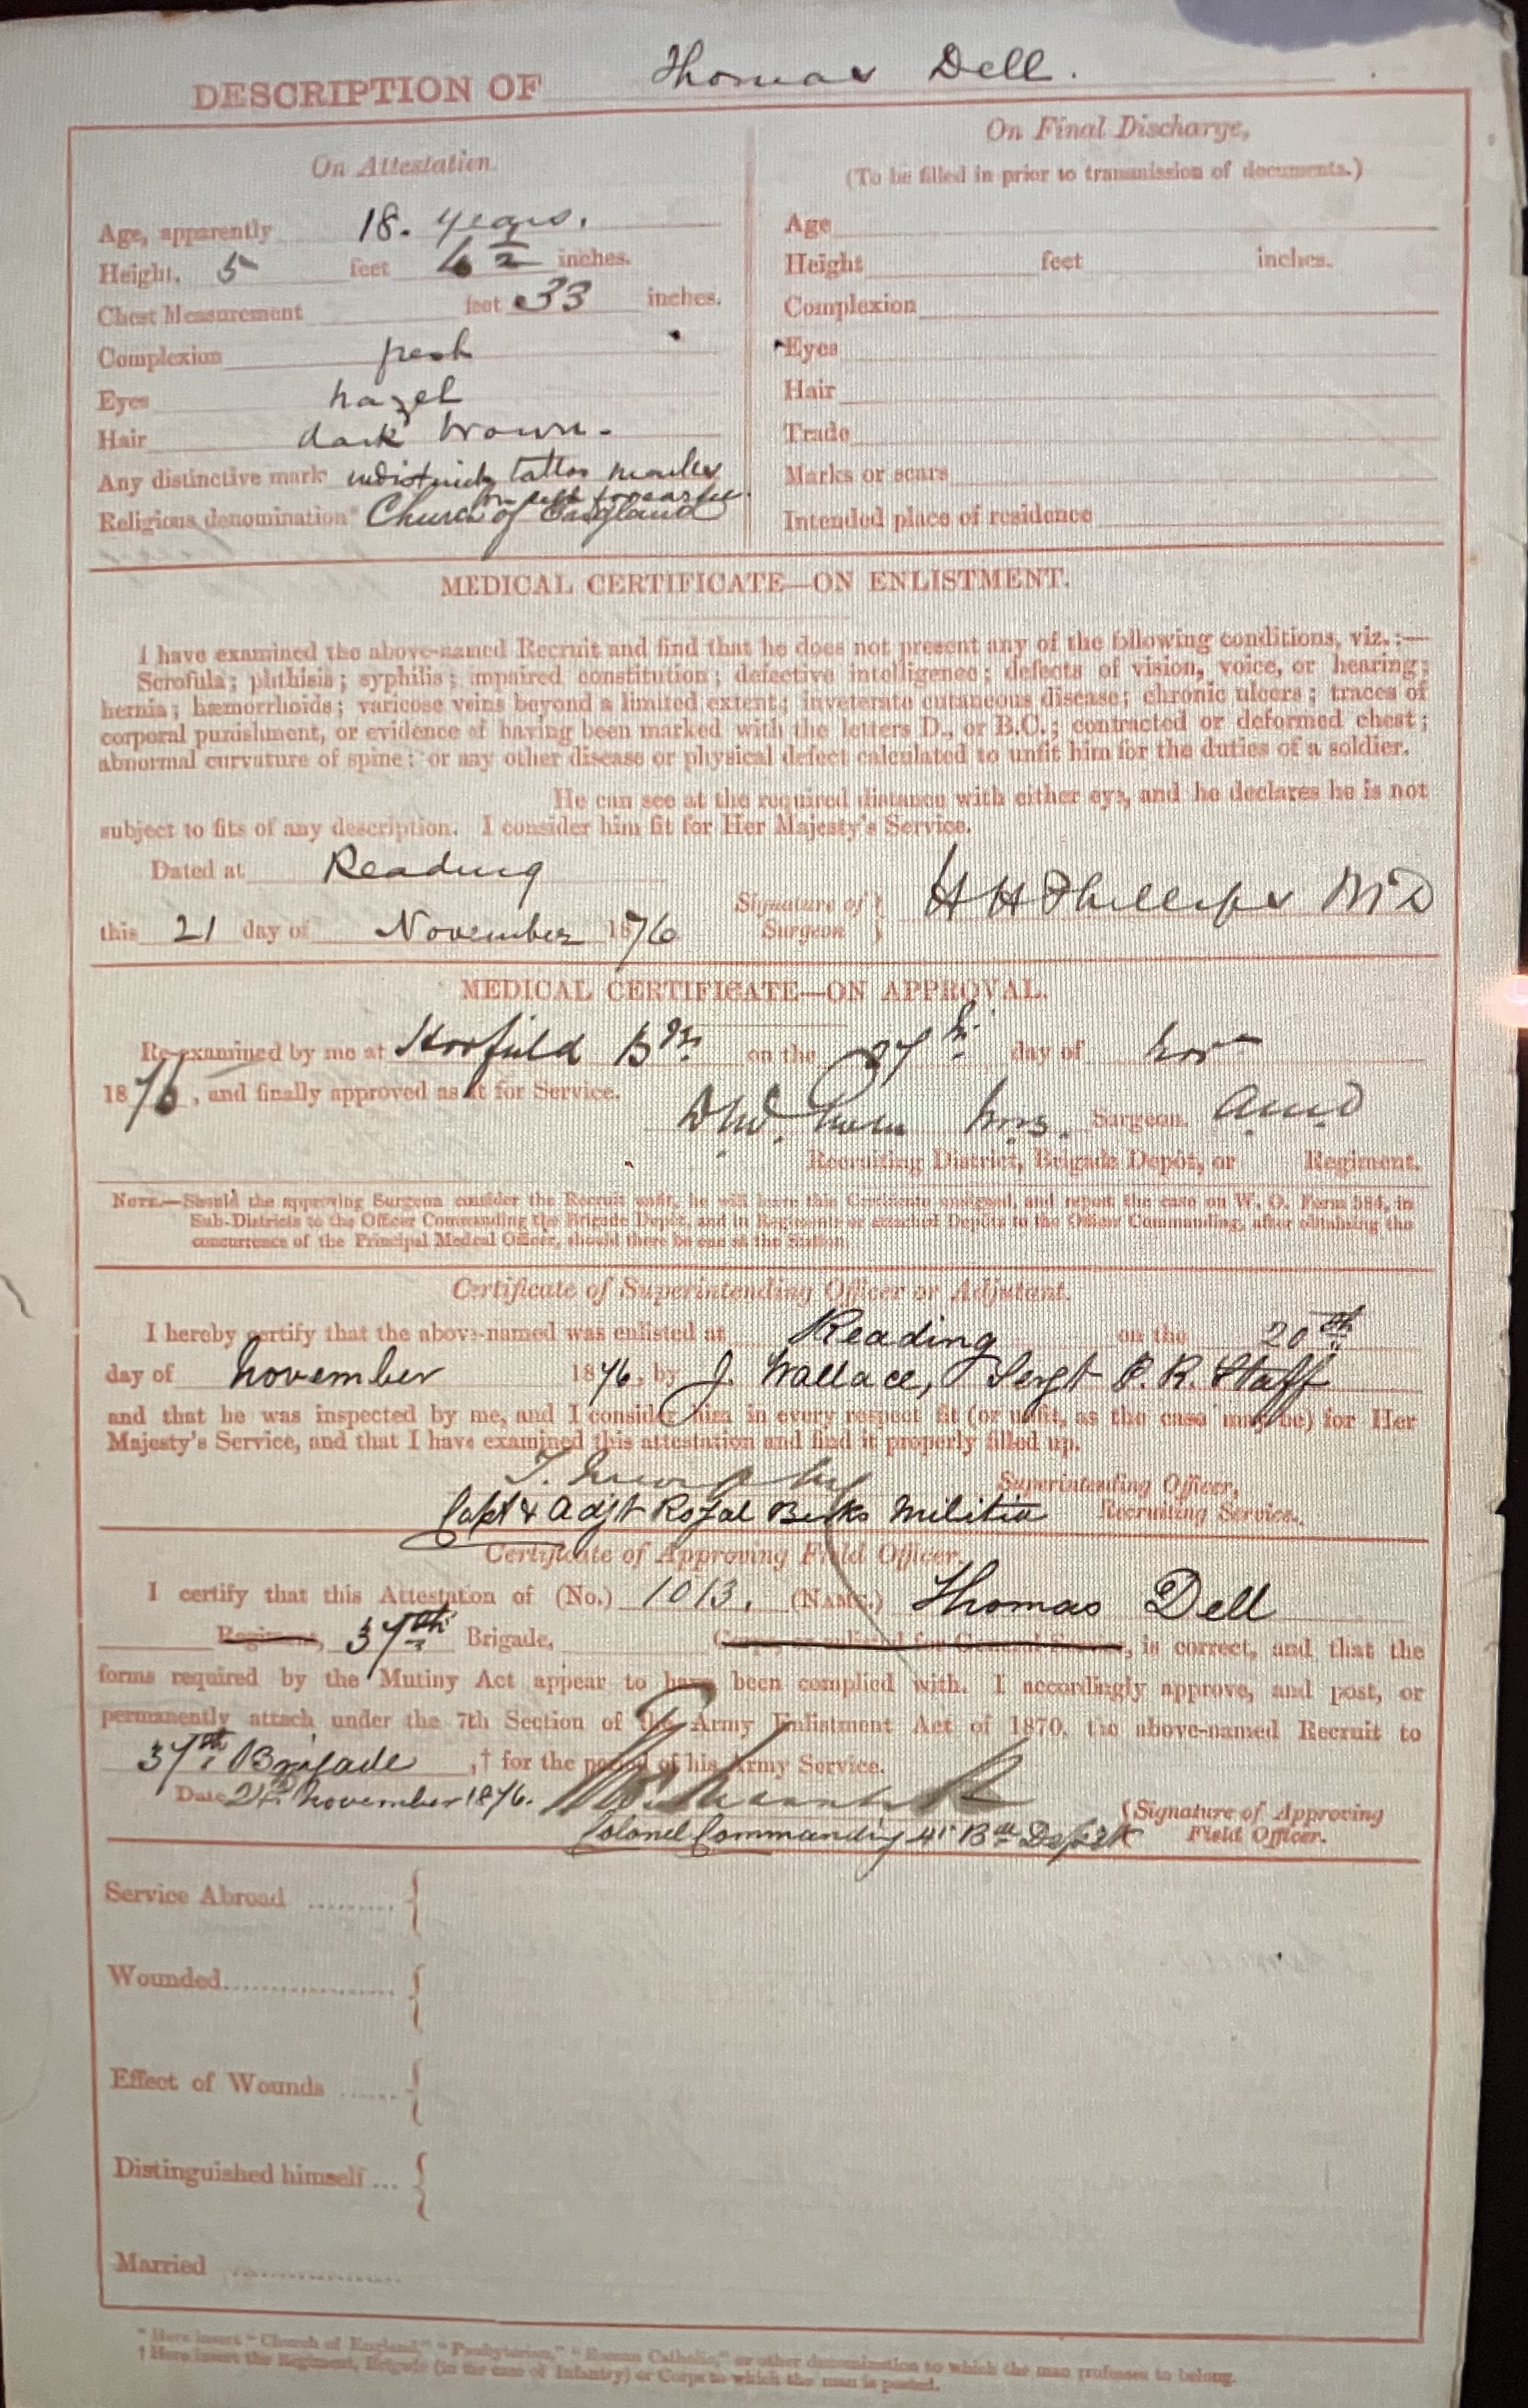 DESCRIPTION OF Thomas Dell.
On Attestation.
Age, apparently 18. years.
Height. 5 feet 6½ inches.
Chest Measurement feet 33 inches.
Complexion fresh
Eyes hazel
Hair dark brown.
Any distinctive mark indistinct tattoo marks
on left forearm.
Religious denomination* Church of England
On Final Discharge,
(To be filled in prior to transmission of documents.)
Age
Height feet inches.
Complexion
Eyes
Hair
Trade
Marks or scars
Intended place of residence
MEDICAL CERTIFICATE—ON ENLISTMENT.
I have examined the above-named Recruit and find that he does not present any of the following conditions, viz.:—
Scrofula; phthisis; syphilis; impaired constitution; defective intelligence; defects of vision, voice, or hearing;
hernia; hæmorrhoids; varicose veins beyond a limited extent; inveterate cutaneous disease; chronic ulcers; traces of
corporal punishment, or evidence of having been marked with the letters D., or B.C.; contracted or deformed chest;
abnormal curvature of spine; or any other disease or physical defect calculated to unfit him for the duties of a soldier.
He can see at the required distance with either eye, and he declares he is not
subject to fits of any description. I consider him fit for Her Majesty's Service.
Dated at Reading
this 21 day of November 1876
Signature of Surgeon } H H Phillips MD
MEDICAL CERTIFICATE—ON APPROVAL.
Re-examined by me at Horfield Bks. on the 27th day of Novr
1876, and finally approved as fit for Service.
Surgeon. A.M.D
Recruiting District, Brigade Depôt, or Regiment.
NOTE.—Should the approving Surgeon consider the Recruit unfit, he will leave this Certificate unsigned, and report the case on W. O. Form 584, in
Sub-Districts to the Officer Commanding the Brigade Depôt, and in Regiments or attached Depôts to the Officer Commanding, after obtaining the
concurrence of the Principal Medical Officer, should there be one at the Station.
Certificate of Superintending Officer or Adjutant.
I hereby certify that the above-named was enlisted at Reading on the 20th
day of November 1876, by J. Wallace, Sergt P. R. Staff
and that he was inspected by me, and I consider him in every respect fit (or unfit, as the case may be) for Her
Majesty's Service, and that I have examined this attestation and find it properly filled up.
T. Murphy Superintending Officer,
Capt & Adjt Royal Berks Militia Recruiting Service.
Certificate of Approving Field Officer.
I certify that this Attestation of (No.) 1013. (NAME.) Thomas Dell
Regiment, 37th Brigade, is correct, and that the
forms required by the Mutiny Act appear to have been complied with. I accordingly approve, and post, or
permanently attach under the 7th Section of the Army Enlistment Act of 1870, the above-named Recruit to
37th Brigade ,† for the period of his Army Service.
Date November 1876.
Colonel Commanding Bde Depôt
{Signature of Approving
Field Officer.
Service Abroad
Wounded
Effect of Wounds
Distinguished himself
Married
* Here insert "Church of England," "Presbyterian," "Roman Catholic," or other denomination to which the man professes to belong.
† Here insert the Regiment, Brigade (in the case of Infantry) or Corps to which the man is posted.